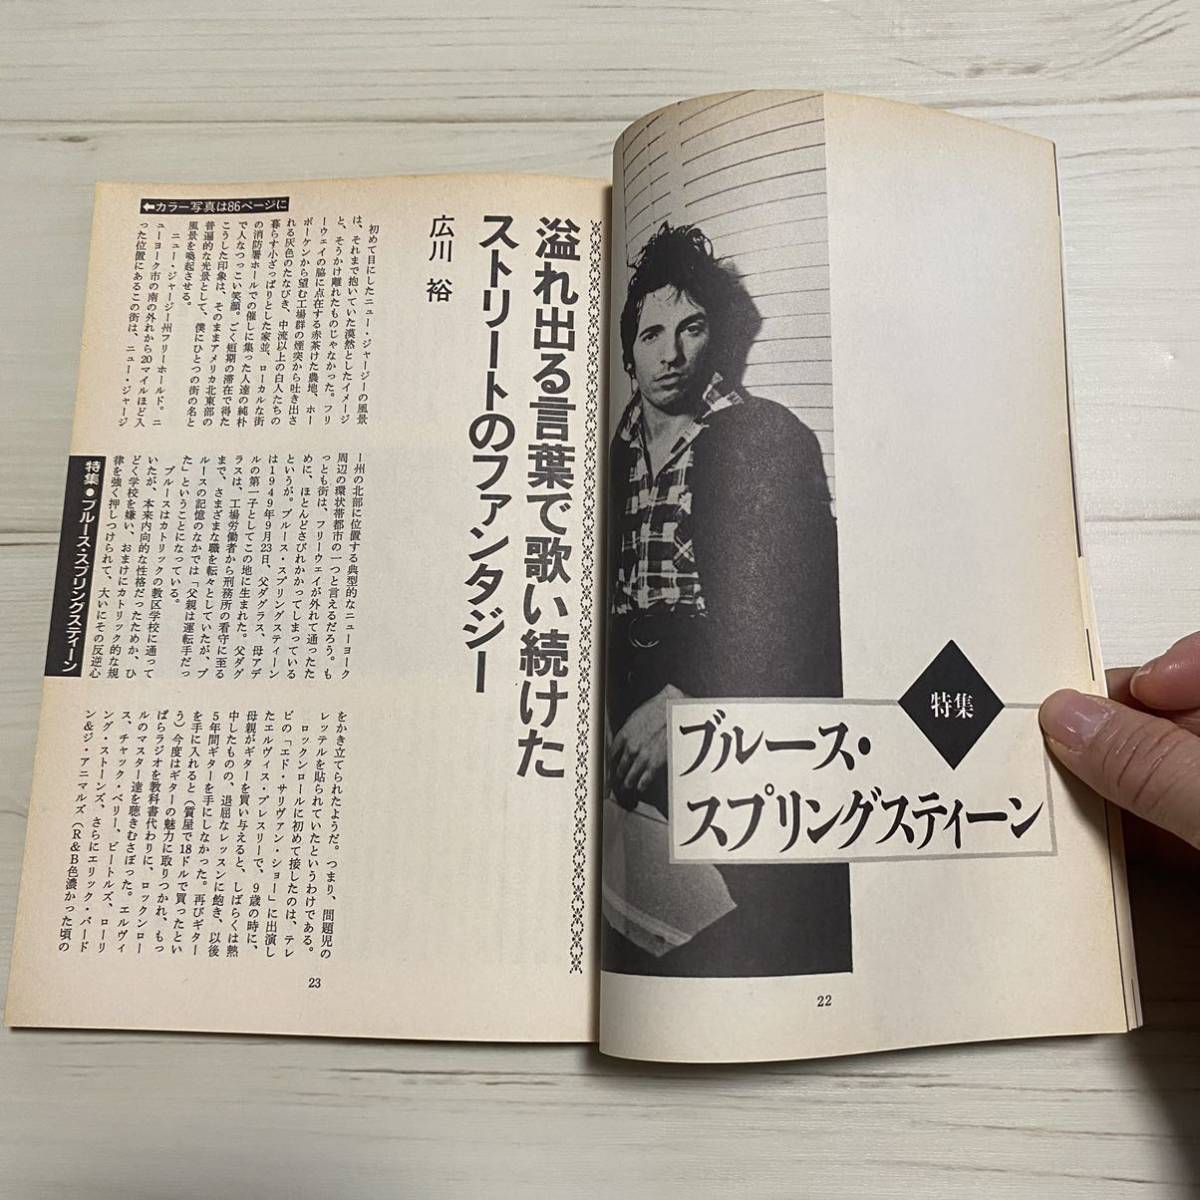 特集
ブルース・
スプリングスティーン
22
溢れ出る言葉で歌い続けた
ストリートのファンタジー
広川 裕
⬅カラー写真は86ページに
初めて目にしたニュー・ジャージーの風景
は、それまで抱いていた漠然としたイメージ
と、そうかけ離れたものじゃなかった。フリ
ーウェイの脇に点在する赤茶けた農地、ホー
ボーケンから望む工場群の煙突から吐き出さ
れる灰色のたなびき、中流以上の白人たちの
暮らす小ざっぱりとした家並、ローカルな街
の消防署ホールでの催しに集った人達の純朴
で人なつっこい笑顔。ごく短期の滞在で得た
こうした印象は、そのままアメリカ北東部の
普遍的な光景として、僕にひとつの街の名と
風景を喚起させる。
ニュー・ジャージー州フリーホールド。ニ
ューヨーク市の南の外れから20マイルほど入
った位置にあるこの街は、ニュー・ジャージ
ー州の北部に位置する典型的なニューヨーク
周辺の環状帯都市の一つと言えるだろう。も
っとも街は、フリーウェイが外れて通ったた
めに、ほとんどさびれかかってしまっている
というが。ブルース・スプリングスティーン
は1949年9月23日、父ダグラス、母アデ
ルの第一子としてこの地に生まれた。父ダグ
ラスは、工場労働者から刑務所の看守に至る
まで、さまざまな職を転々としていたが、ブ
ルースの記憶のなかでは「父親は運転手だっ
た」ということになっている。
ブルースはカトリックの教区学校に通って
いたが、本来内向的な性格だったためか、ひ
どく学校を嫌い、おまけにカトリック的な規
律を強く押しつけられて、大いにその反逆心
をかき立てられたようだ。つまり、問題児の
レッテルを貼られていたというわけである。
ロックンロールに初めて接したのは、テレ
ビの「エド・サリヴァン・ショー」に出演し
たエルヴィス・プレスリーで、9歳の時に、
母親がギターを買い与えると、しばらくは熱
中したものの、退屈なレッスンに飽き、以後
5年間ギターを手にしなかった。再びギター
を手に入れると（質屋で18ドルで買ったとい
う）今度はギターの魅力に取りつかれ、もっ
ぱらラジオを教科書代わりに、ロックンロー
ルのマスター達を聴きむさぼった。エルヴィ
ス、チャック・ベリー、ビートルズ、ローリ
ング・ストーンズ、さらにエリック・バード
ン&ジ・アニマルズ（R&B色濃かった頃の
特集●ブルース・スプリングスティーン
23